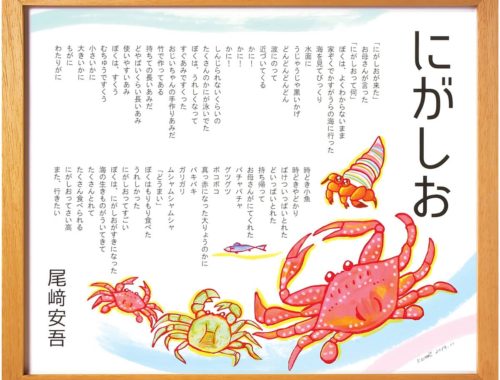 にがしお
「にがしおが来た」
お母さんが言った
「にがしおって何」
ぼくは、よくわからないまま
家ぞくでかすがうらの海に行った
海を見てびっくり
水面に
うじゃうじゃ黒いかげ
どんどんどんどん
波にのって
近づいてくる
かに!
かに!
しんじられないくらいの
たくさんのかにが泳いでた
ぼくは、うれしくなって
すぐあみですくった
おじいちゃんの手作りあみだ
竹で作ってある
持ち手の長いあみだ
どやばいくらい長いあみ
使いやすいあみ
ぼくは、すくう
むちゅうですくう
小さいかに
大きいかに
もがに
わたりがに
時どき小魚
時どきやどかり
ばけついっぱいとれた
どいっぱいとれた
持ち帰って
お母さんがにてくれた
バチャバチャ
グツグツ
ボコボコ
真っ赤になった大りょうのかに
バキバキ
ガリガリ
ムシャムシャムシャ
「どうまい」
ぼくはもりもり食べた
うれしかった
にがしおってすごい
ぼくは、にがしおがすきになった
海の生きものがういてきて
たくさんとれて
たくさん食べられる
にがしおってさい高
また、行きたい
尾﨑安吾